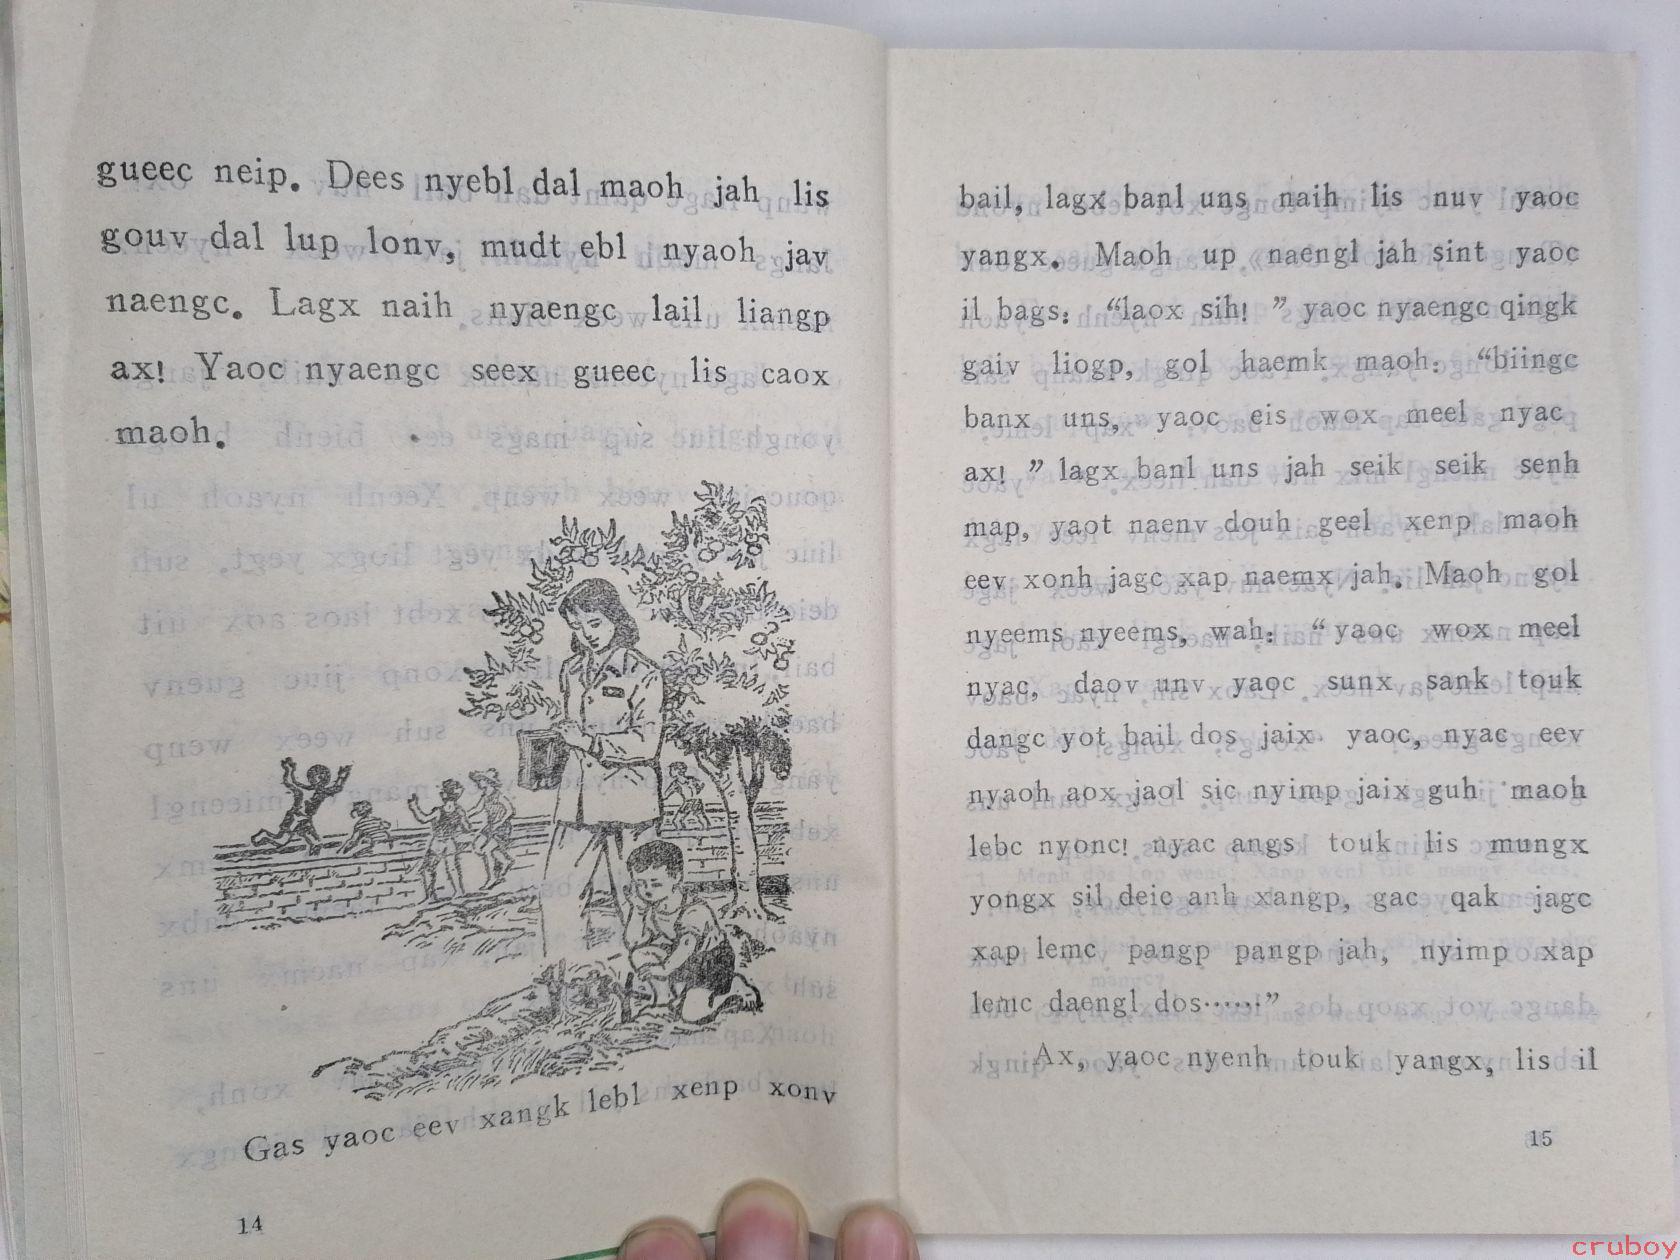 gueec neip. Dees nyebl dal maoh jah lis
gouv dal lup lonv, mudt ebl nyaoh jav
naengc. Lagx naih nyaengc lail liangp
ax! Yaoc nyaengc seex gueec lis caox
maoh.
Gas yaoc eev xangk lebl xenp xonv
14
bail, lagx banl uns naih lis nuv yaoc
yangx. Maoh up naengl jah sint yaoc
il bags: “laox sih! ” yaoc nyaengc qingk
gaiv liogp, gol haemk maoh: “biingc
banx uns, yaoc eis wox meel nyac
ax! ” lagx banl uns jah seik seik senh
map, yaot naenv douh geel xenp maoh
eev xonh jagc xap naemx jah. Maoh gol
nyeems nyeems, wah: “yaoc wox meel
nyac, daov unv yaoc sunx sank touk
dangc yot bail dos jaix yaoc, nyac eev
nyaoh aox jaol sic nyimp jaix guh maoh
lebc nyonc! nyac angs touk lis mungx
yongx sil deic anh xangp, gac qak jagc
xap lemc pangp pangp jah, nyimp xap
lemc daengl dos……”
Ax, yaoc nyenh touk yangx, lis il
15
cruboy